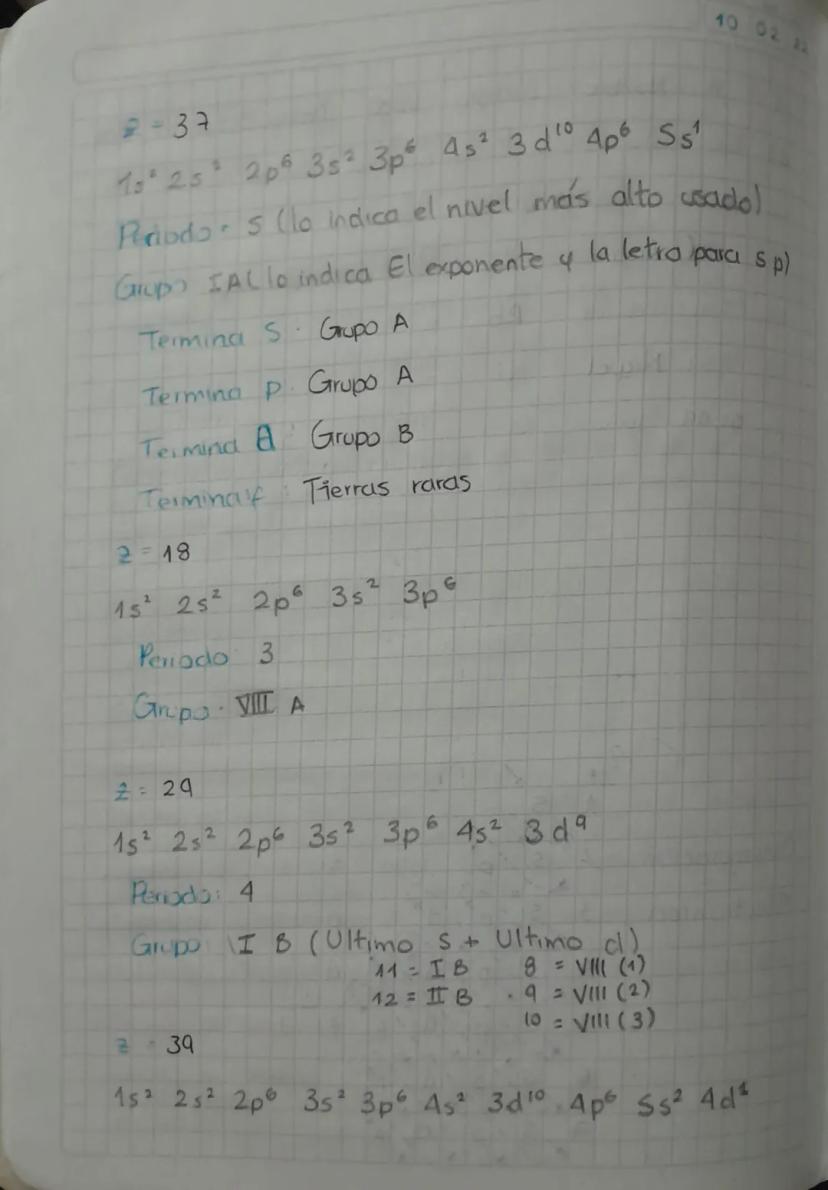 10 02 22
z = 37
1s² 2s² 2p⁶ 3s² 3p⁶ 4s² 3d¹⁰ 4p⁶ 5s¹
Periodo: 5 (lo indica el nivel más alto usado)
Grupo IA (lo indica El exponente y la letra para s p)
Termina s: Grupo A
Termina p: Grupo A
Termina d Grupo B
Termina f: Tierras raras
z = 18
1s² 2s² 2p⁶ 3s² 3p⁶
Periodo 3
Grupo: VIII A
z = 29
1s² 2s² 2p⁶ 3s² 3p⁶ 4s² 3d⁹
Periodo: 4
Grupo I B (Ultimo s + Ultimo d)
11 = I B 8 = VIII (1)
12 = II B 9 = VIII (2)
10 = VIII (3)
z = 39
1s² 2s² 2p⁶ 3s² 3p⁶ 4s² 3d¹⁰ 4p⁶ 5s² 4d¹